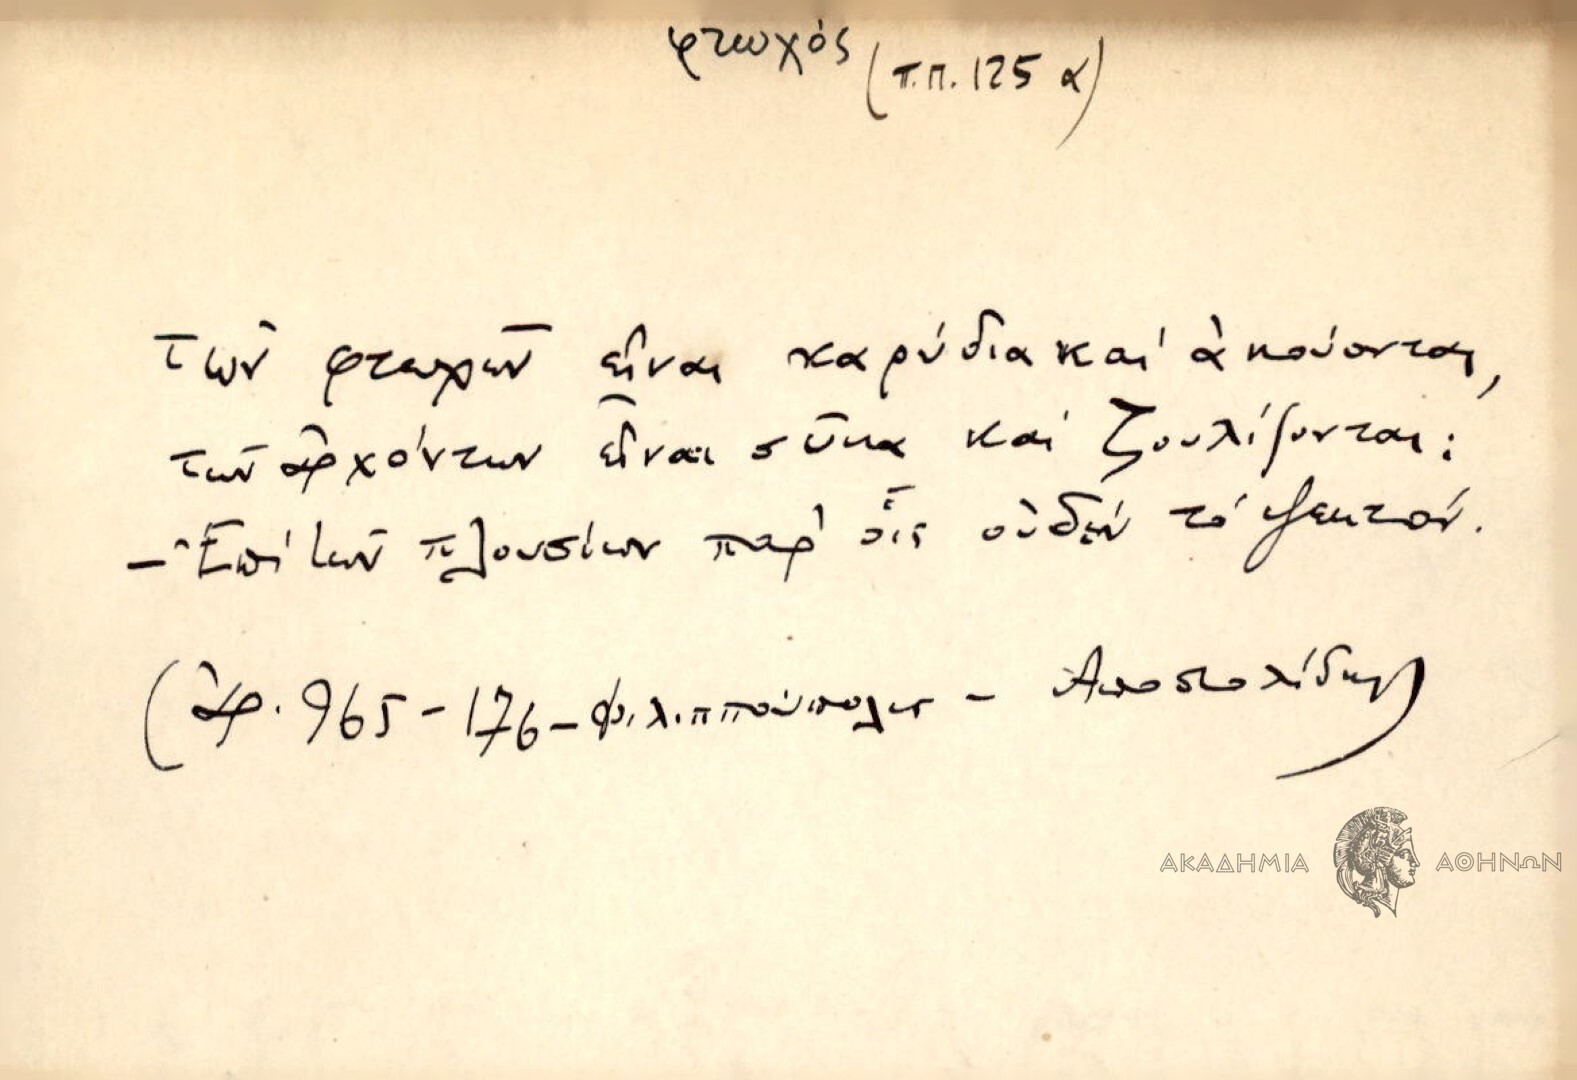 φτωχός (π.π. 125 α)
Τῶν φτωχῶν εἶναι καρύδια καί ἀκούονται,
τῶν ἀρχόντων εἶναι σῦκα καί ζουλίζονται:
– Ἐπί τῶν πλουσίων παρ' οἷς οὐδέν τό ψεκτόν.
(Ἀρ. 965 – 176 – Φιλιππούπολις – Ἀποστολίδης)
ΑΚΑΔΗΜΙΑ ΑΘΗΝΩΝ